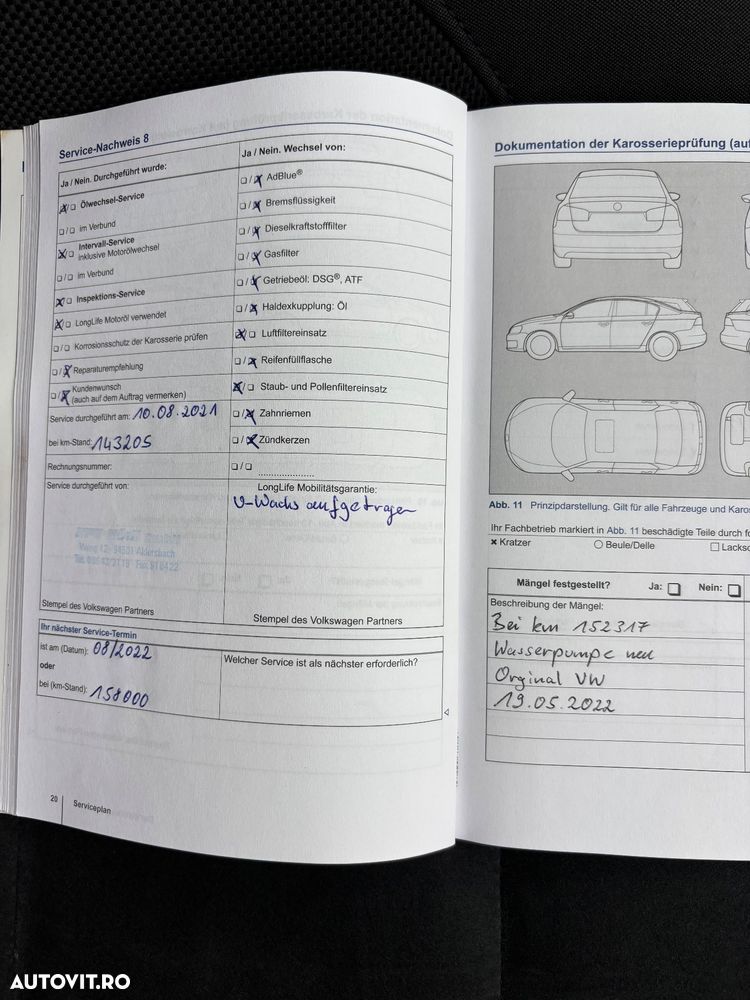 Service-Nachweis 8
Ja / Nein. Durchgeführt wurde:
Ölwechsel-Service
im Verbund
Intervall-Service
inklusive Motorölwechsel
im Verbund
Inspektions-Service
LongLife Motoröl verwendet
Korrosionsschutz der Karosserie prüfen
Reparaturempfehlung
Kundenwunsch
(auch auf dem Auftrag vermerken)
Service durchgeführt am: 10.08.2021
bei km-Stand: 143205
Rechnungsnummer:
Service durchgeführt von:
Stempel des Volkswagen Partners
Ja / Nein. Wechsel von:
AdBlue®
Bremsflüssigkeit
Dieselkraftstofffilter
Gasfilter
Getriebeöl: DSG®, ATF
Haldexkupplung: Öl
Luftfiltereinsatz
Reifenfüllflasche
Staub- und Pollenfiltereinsatz
Zahnriemen
Zündkerzen
LongLife Mobilitätsgarantie:
U-Wachs aufgetragen
Stempel des Volkswagen Partners
Ihr nächster Service-Termin
ist am (Datum): 08/2022
oder
bei (km-Stand): 158000
Welcher Service ist als nächster erforderlich?
20
Serviceplan
Dokumentation der Karosserieprüfung (auf
Abb. 11 Prinzipdarstellung. Gilt für alle Fahrzeuge und Karo
Ihr Fachbetrieb markiert in Abb. 11 beschädigte Teile durch fo
Kratzer
Beule/Delle
Lacksc
Mängel festgestellt? Ja: Nein:
Beschreibung der Mängel:
Bei km 152317
Wasserpumpe neu
Orginal VW
19.05.2022
AUTOVIT.RO